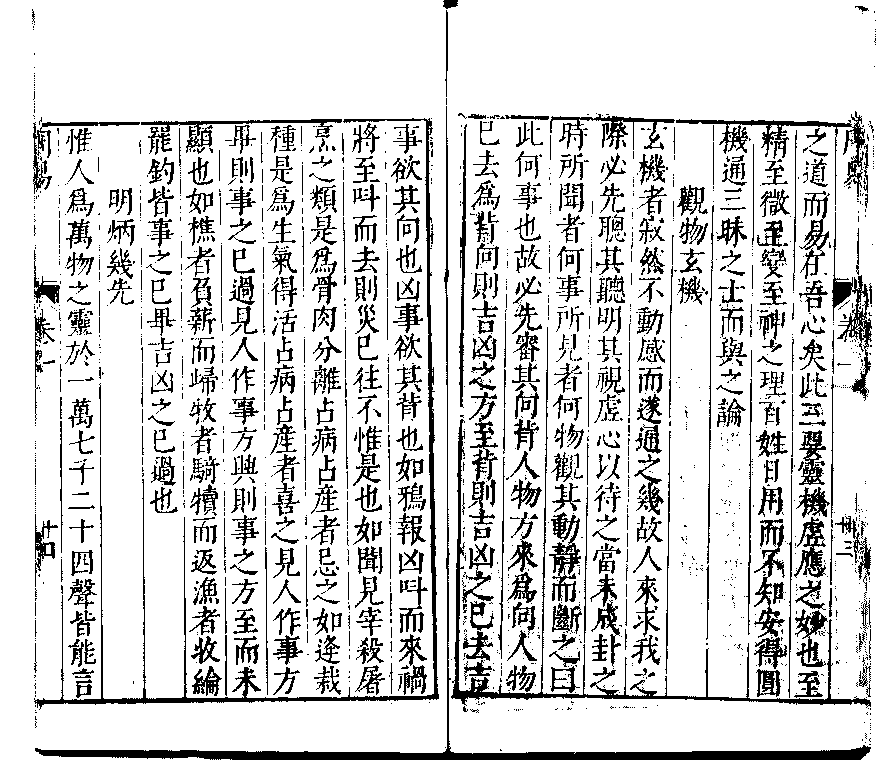 之道而易在吾心矣此三要靈機虛應之妙也至
精至微至變至神之理百姓日用而不知安得圓
機通三昧之士而與之論
觀物玄機
玄機者寂然不動感而遂通之幾故人來求我之
際必先聰其聽明其視虛心以待之當未成卦之
時所聞者何事所見者何物觀其動靜而斷之曰
此何事也故必先審其向背人物方來爲向人物
已去爲背向則吉凶之方至背則吉凶之已去吉
事欲其向也凶事欲其背也如鴉報凶呌而來禍
將至呌而去則災已往不惟是也如聞見宰殺屠
烹之類是爲骨肉分離占病占産者忌之如逢栽
種是爲生氣得活占病占産者喜之見人作事方
畢則事之已過見人作事方興則事之方至而未
顯也如樵者負薪而歸牧者騎犢而返漁者收綸
罷釣皆事之已畢吉凶之已過也
明炳幾先
惟人爲萬物之靈於一萬七千二十四聲皆能言
卷一
十四